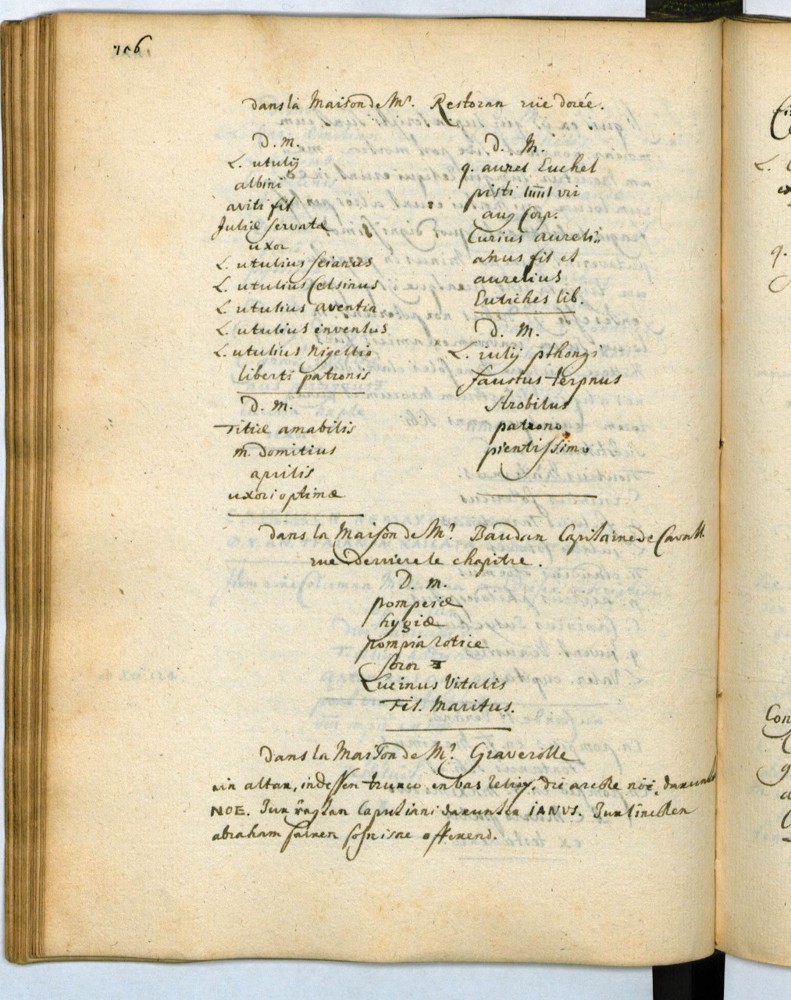 106.
dans la Maison de Mr. Restoran rüe dorée.
D. M.
L. utulij
albini
aviti fil
Juliæ servatæ
uxor
L. utulius seianus
L. utulius Celsinus
L. utulius aventin
L. utulius inventus
L. utulius Nigellio
liberti patronis
D. M.
Titiæ amabilis
M. Domitius
aprilis
uxori optimæ
D. M.
q. aurel Euchel
pisti IIIIII vir
aug Corp.
Curius aureli
anus fil et
aurelius
Eutiches lib.
D. M.
L. iulij pthongi
faustus terpnus
strobilus
patrono
pientissimo
dans la Maison de Mr. Baudan Capitaine de Cavall.
rue derriere le chapitre.
D. M.
pompeiæ
hygiæ
pompia
soror
Lucinus Vitalis
Fil. Maritus.
dans la Maison de Mr. Graverolle
ein altar, indessen trunco in bas die noë, darunter
NOE. darunter IANUS.
abraham seinen sohn offerend.